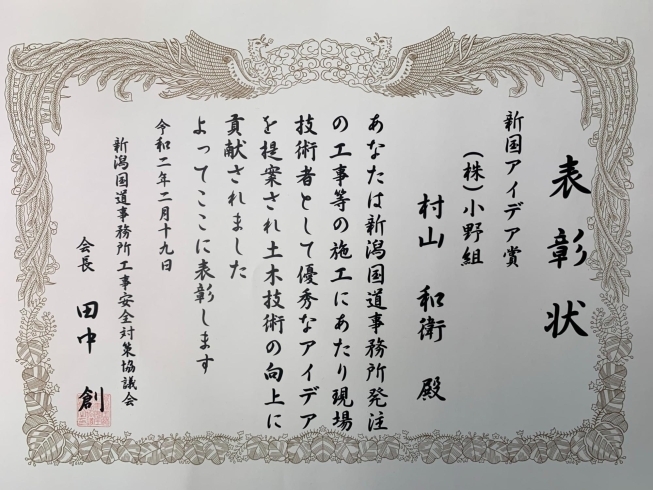 表彰状
新国アイデア賞
(株)小野組
村山 和衛 殿
あなたは新潟国道事務所発注
の工事等の施工にあたり現場
技術者として優秀なアイデア
を提案され土木技術の向上に
貢献されました
よってここに表彰します
令和二年二月十九日
新潟国道事務所工事安全対策協議会
会長 田中 創